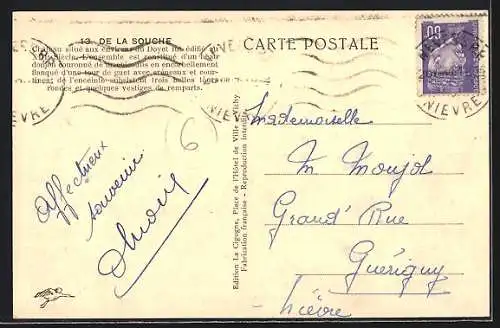 13. DE LA SOUCHE
Château situé aux environs du Doyet fut édifié au
siècle. L'ensemble est constitué d'un
donjon couronné de en encorbellement
flanqué d'une tour de guet avec créneaux et
de l'enceinte subsistent trois belles tours
rondes et quelques vestiges de remparts.
CARTE POSTALE
NIEVRE
NIEVRE
6
Affectueux
souvenir
Edition La Cigogne, Place de l'Hôtel de Ville
Fabrication française - Reproduction interdite
Mademoiselle
M. Moujol
Grand' Rue
Guérigny
Nièvre